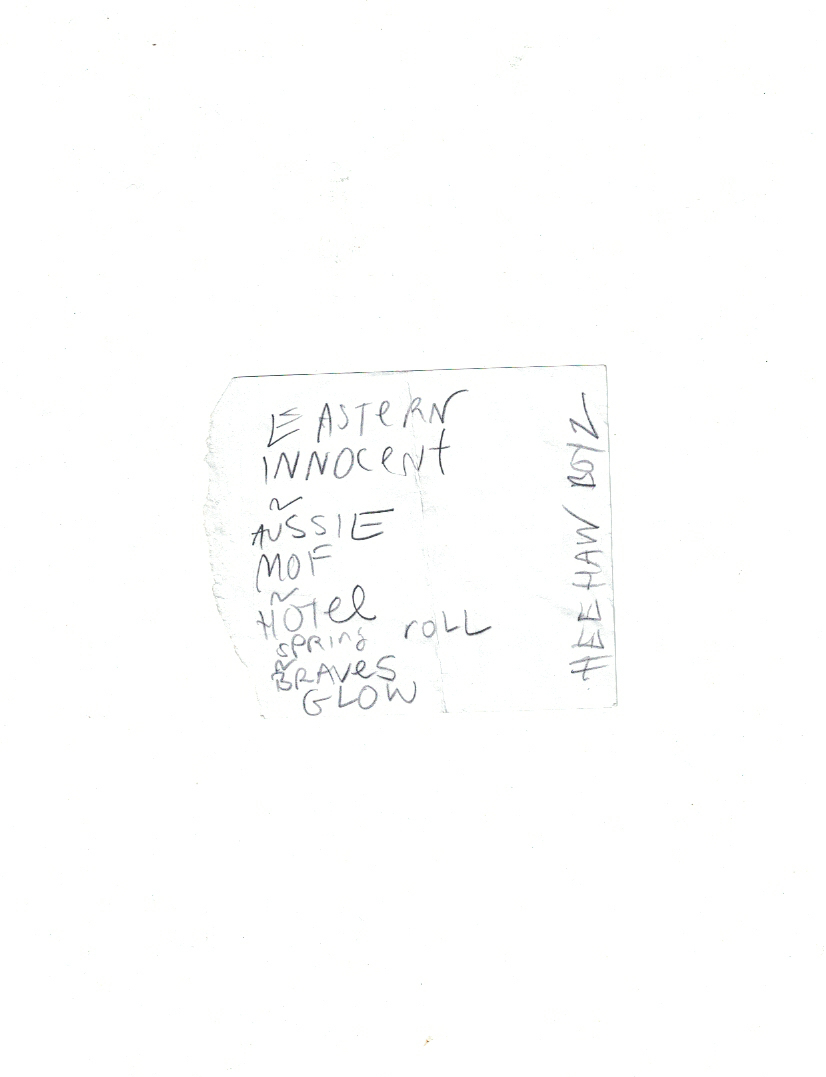 EASTeRN
INNOCeNt
~
AUSSIE
MOF
~
HOTel
SPRING roLL
~
BRAVeS
GLOW
HEE HAW BOYZ